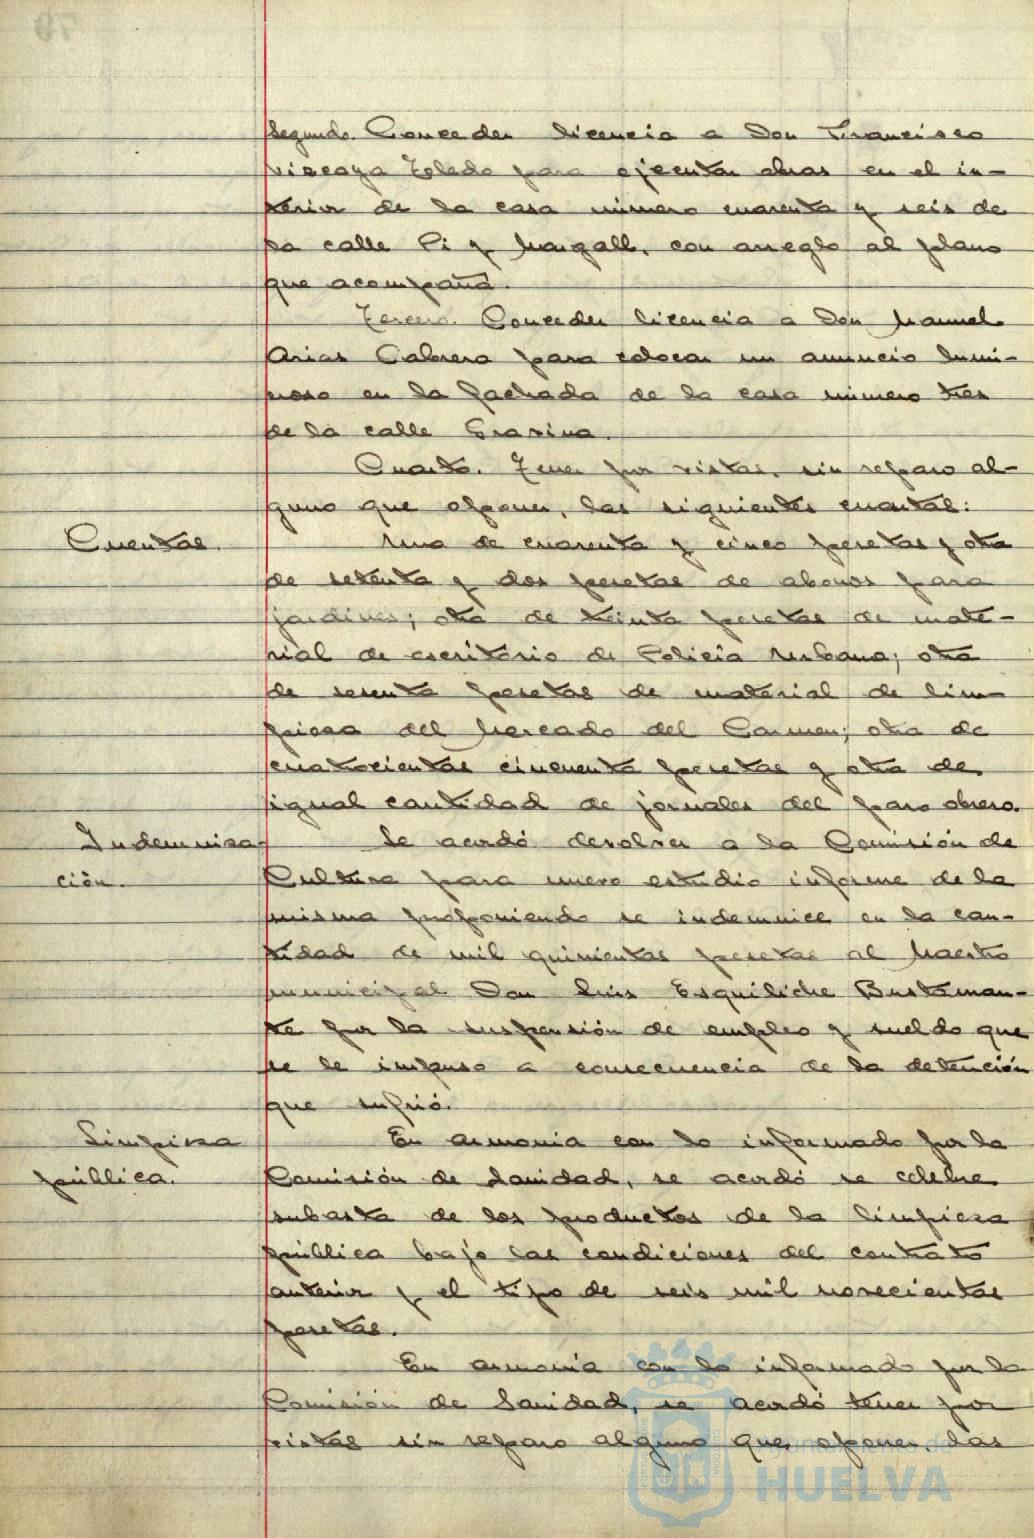 Segundo. Conceder licencia a Don Francisco
Viscaya Toledo para ejecutar obras en el in-
terior de la casa número cuarenta y seis de
la calle Pi y Margall, con arreglo al plano
que acompaña.
Tercero. Conceder licencia a Don Manuel
Arias Cabrera para colocar un anuncio lumi-
noso en la fachada de la casa número tres
de la calle Gravina.
Cuarto. Tener por vistas, sin reparo al-
guno que oponer, las siguientes cuentas:
Cuentas.
Una de cuarenta y cinco pesetas y otra
de setenta y dos pesetas de abonos para
jardines; otra de treinta pesetas de mate-
rial de escritorio de Policia Urbana; otra
de sesenta pesetas de material de lim-
pieza del Mercado del Carmen; otra de
cuatrocientas cincuenta pesetas y otra de
igual cantidad de jornales del paro obrero.
Indemniza-
ción.
Se acordó devolver a la Comisión de
Cultura para nuevo estudio informe de la
misma proponiendo se indemnice en la can-
tidad de mil quinientas pesetas al Maestro
municipal Don Luis Esquiliche Bustaman-
te por la suspensión de empleo y sueldo que
se le impuso a consecuencia de la detención
que sufrió.
Limpieza
pública.
En armonia con lo informado por la
Comisión de Sanidad, se acordó se celebre
subasta de los productos de la limpieza
pública bajo las condiciones del contrato
anterior y el tipo de seis mil novecientas
pesetas.
En armonia con lo informado por la
Comisión de Sanidad, se acordó tener por
vistas sin reparo alguno que oponer, las
Ayuntamiento de
HUELVA